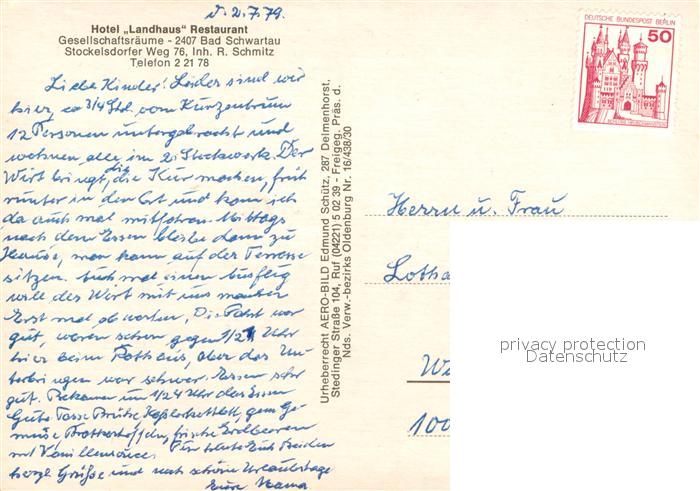 d. 2.7.79.
Hotel „Landhaus" Restaurant
Gesellschaftsräume - 2407 Bad Schwartau
Stockelsdorfer Weg 76, Inh. R. Schmitz
Telefon 2 21 78
Liebe Kinder! Leider sind wir
hier, ca 3/4 Std. vom Kurzentrum
12 Personen untergebracht und
wohnen alle im 2. Stockwerk. Der
Wirt bringt, die die Kur machen, früh
runter in den Ort und kann ich
da auch mal mitfahren. Mittags
nach dem Essen bleibe dann zu
Hause, man kann auf der Terrasse
sitzen. Auch mal einen Ausflug
will der Wirt mit uns machen
Erst mal abwarten. Die Fahrt war
gut, waren schon gegen 1/2 1 Uhr
hier beim Rathaus, aber das Un-
terbringen war schwer. Essen sehr
gut. Bekamen um 1/2 4 Uhr das Essen
Gute Tasse Brühe Kaßlerkotlett, gem. Ge-
müse, Bratkartoffeln, frische Erdbeeren
mit Vanillensauce. Für heute Euch beiden
herzl. Grüße und noch schöne Urlaubstage
Eure Mama
Urheberrecht AERO-BILD Edmund Schütz, 287 Delmenhorst,
Stedinger Straße 104, Ruf (04221) 5 02 39 - Freigeg. Präs. d.
Nds. Verw.-bezirks Oldenburg Nr. 16/438/30
DEUTSCHE BUNDESPOST BERLIN
50
Herrn u. Frau
Lotha
W
100
privacy protection
Datenschutz